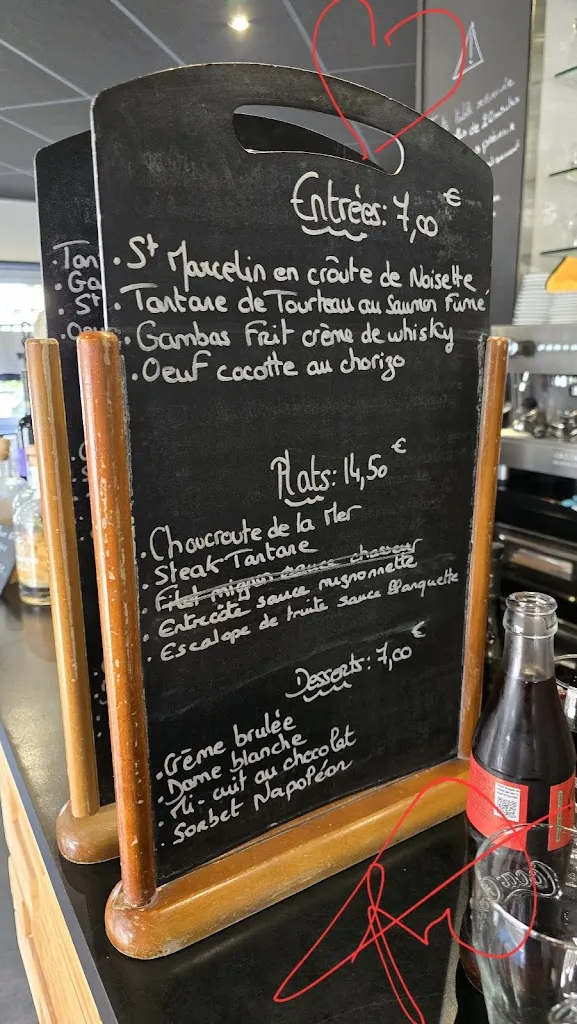 Entrées: 7,00 €
. St Marcelin en croûte de Noisette
. Tartare de Tourteau au Saumon Fumé
. Gambas Frit crème de whisky
. Oeuf cocotte au chorizo
Plats: 14,50 €
. Choucroute de la Mer
. Steak-Tartare
. Filet mignon sauce chasseur
. Entrecôte sauce mignonnette
. Escalope de truite sauce Blanquette
Desserts: 7,00 €
. Crème brulée
. Dame blanche
. Mi-cuit au chocolat
. Sorbet Napoléon
. Tan
. Ga
. St
. Oeu
Coca-Cola